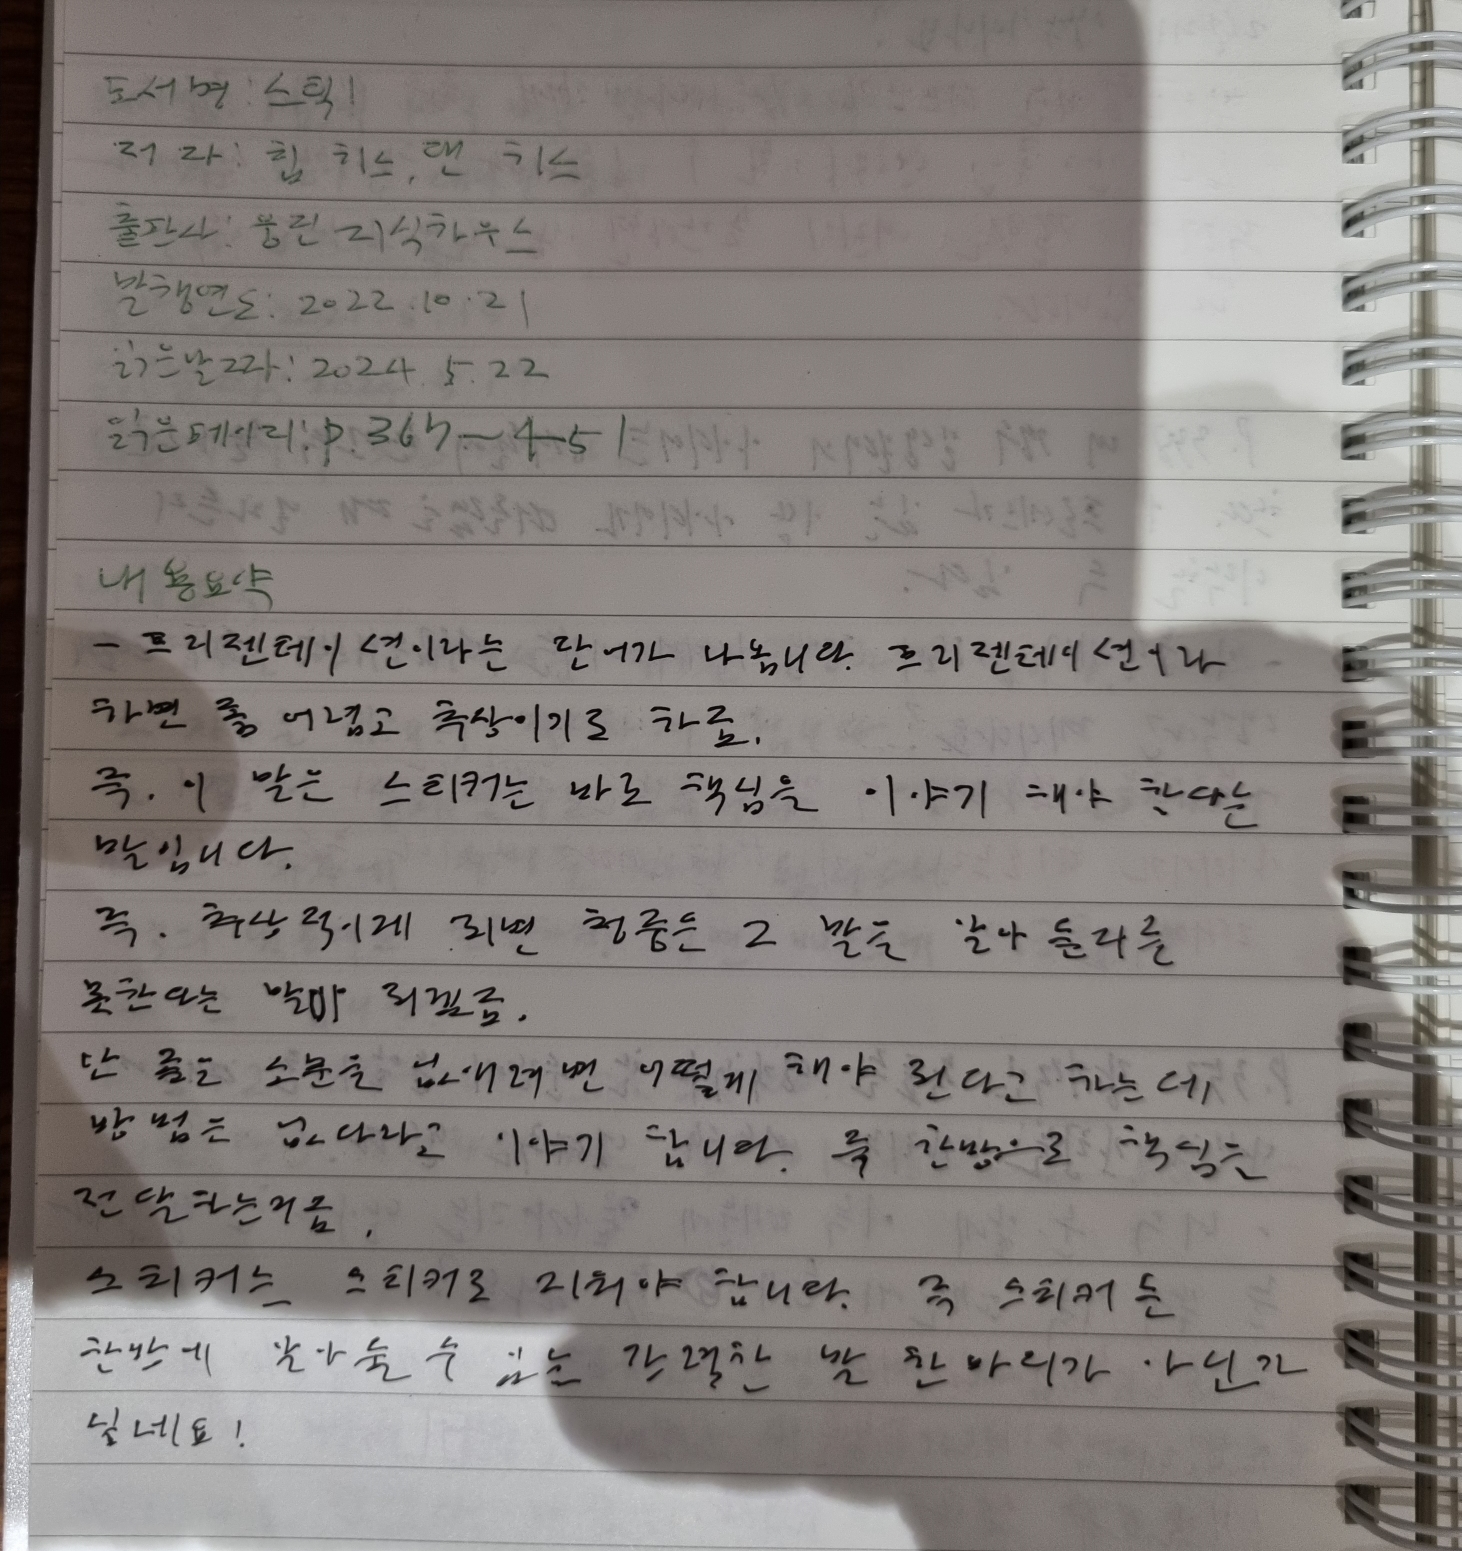 도서명: 스틱!
저 자: 칩 히스, 댄 히스
출판사: 웅진 지식하우스
발행연도: 2022.10.21
읽은날짜: 2024.5.22
읽은페이지: p.367~451
내용요약
- 프리젠테이션이라는 단어가 나옵니다. 프리젠테이션이라
하면 좀 어렵고 추상이기로 하죠.
즉, 이 말은 스티커는 바로 핵심을 이야기 해야 한다는
말입니다.
즉, 추상적이게 되면 청중은 그 말을 알아 듣지를
못한다는 말이 되겠죠.
단 소문을 없애려면 어떻게 해야 된다고 하는데,
방법은 없다라고 이야기 합니다. 즉 한방으로 핵심을
전달하는거죠.
스티커는 스티커로 지워야 합니다. 즉 스티커는
한방에 알아들 수 있는 강렬한 말 한마디가 아닌가
싶네요!